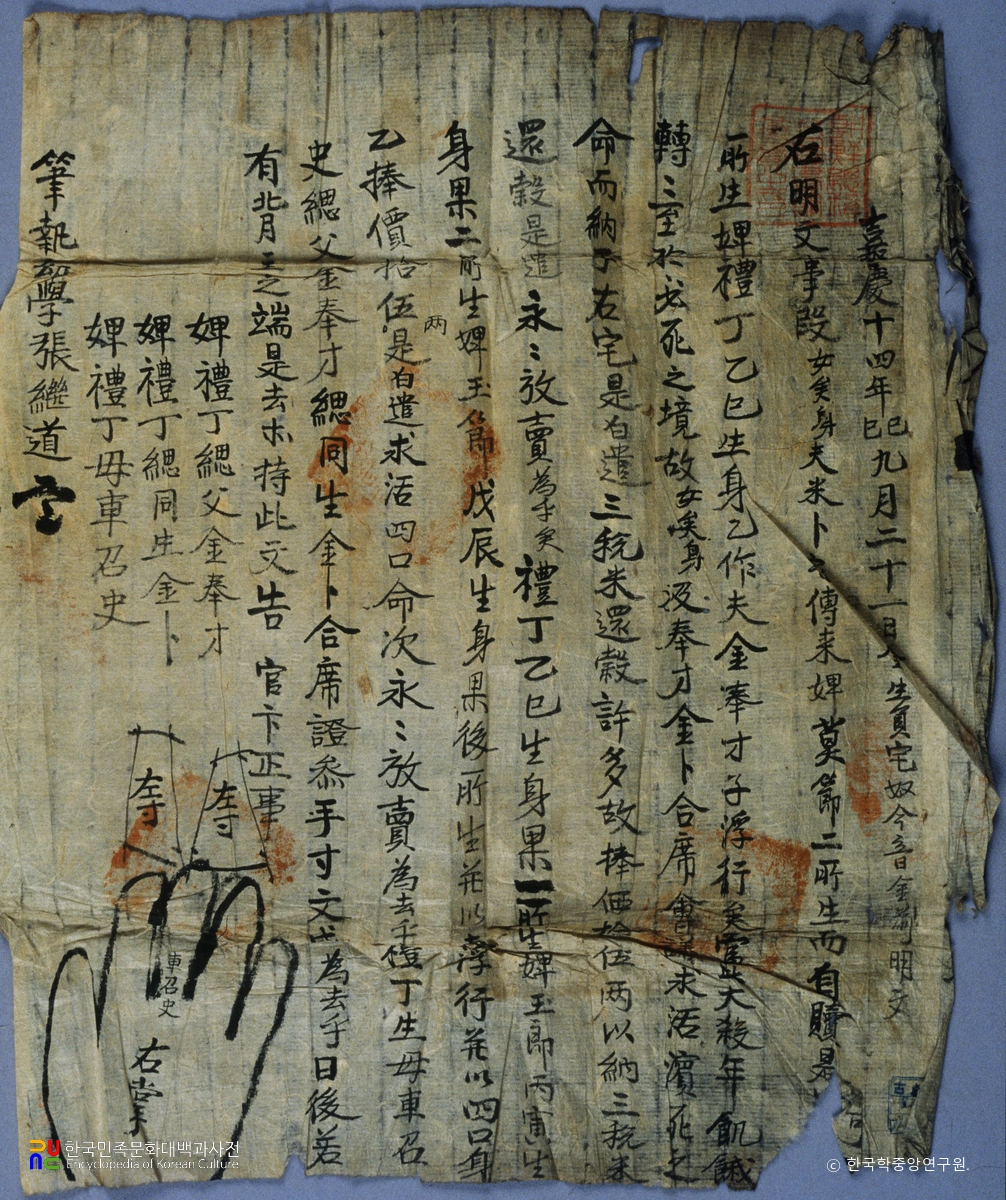 嘉慶十四年己巳九月二十一日 生員宅奴今音金 明文
右明文事段女矣身夫米卜 傳来婢莫節二所生而自贖是
一所生婢禮丁乙巳生身乙作夫金奉才子浮行矣 大殺年飢餓
轉 三至於 死之境故女矣身 奉才金卜合席會 求活濱死之
命而納于右宅是白遣三税米還穀許多故捧価拾伍兩以納三税米
還穀是遣永〻放賣為乎矣禮丁乙巳生身果一所生婢玉節丙寅生
身果二所生婢玉節戊辰生身果後所生并以 行并以四口身
乙捧價拾伍兩是白遣求活四口命次永〻放賣為去乎禮丁生母車召
史緦父金奉才緦同生金卜合席證參手寸文 為去乎日後若
有 之端是去 持此文告 官卞正事
婢禮丁緦父金奉才
左寸
婢禮丁緦同生金卜
左寸
婢禮丁母車召史
車召史
右掌
筆執 張繼道
한국민족문화대백과사전
Encyclopedia of Korean Culture
© 한국학중앙연구원.